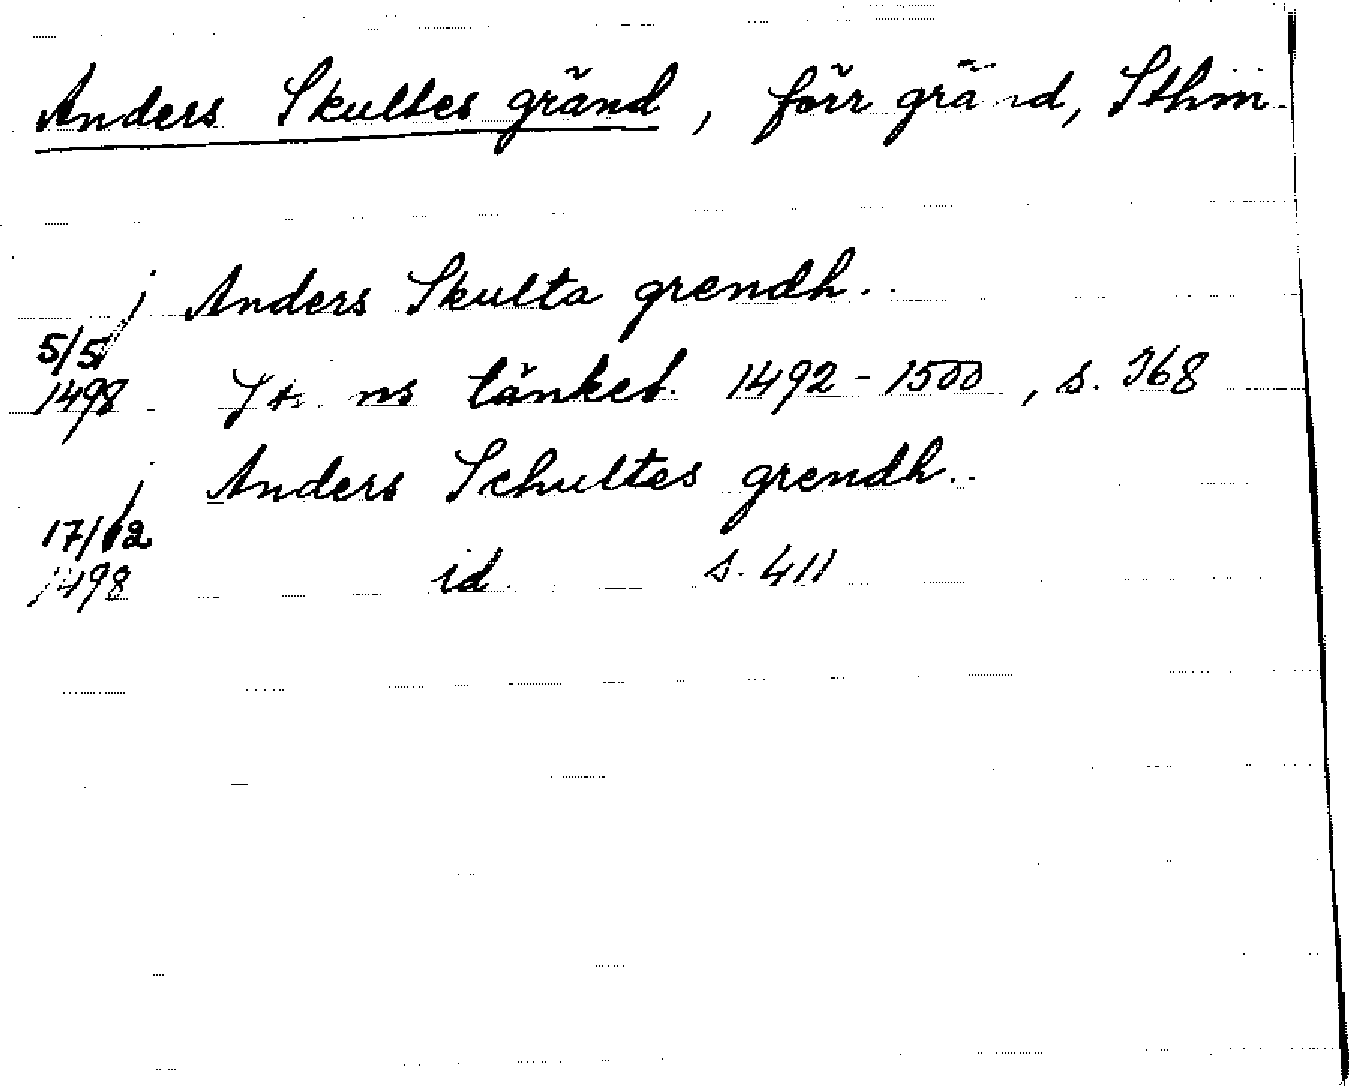 Anders Skultes gränd, förr gränd, Sthm.
j Anders Skulta grendh..
5/5
1498 St. ns tänkeb. 1492-1500, s. 368
j Anders Schultes grendh..
17/12
1498 id. s. 411